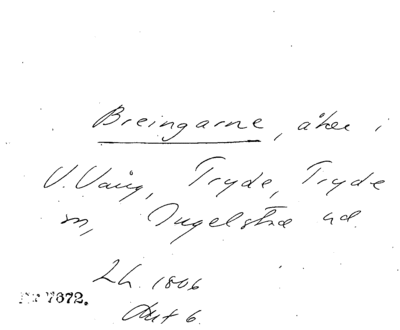 Breingarne, åker i
V. Vång, Tryde, Tryde
sn, Ingelstad hd.
Lh. 1806
Akt 6.
Nr 7672.